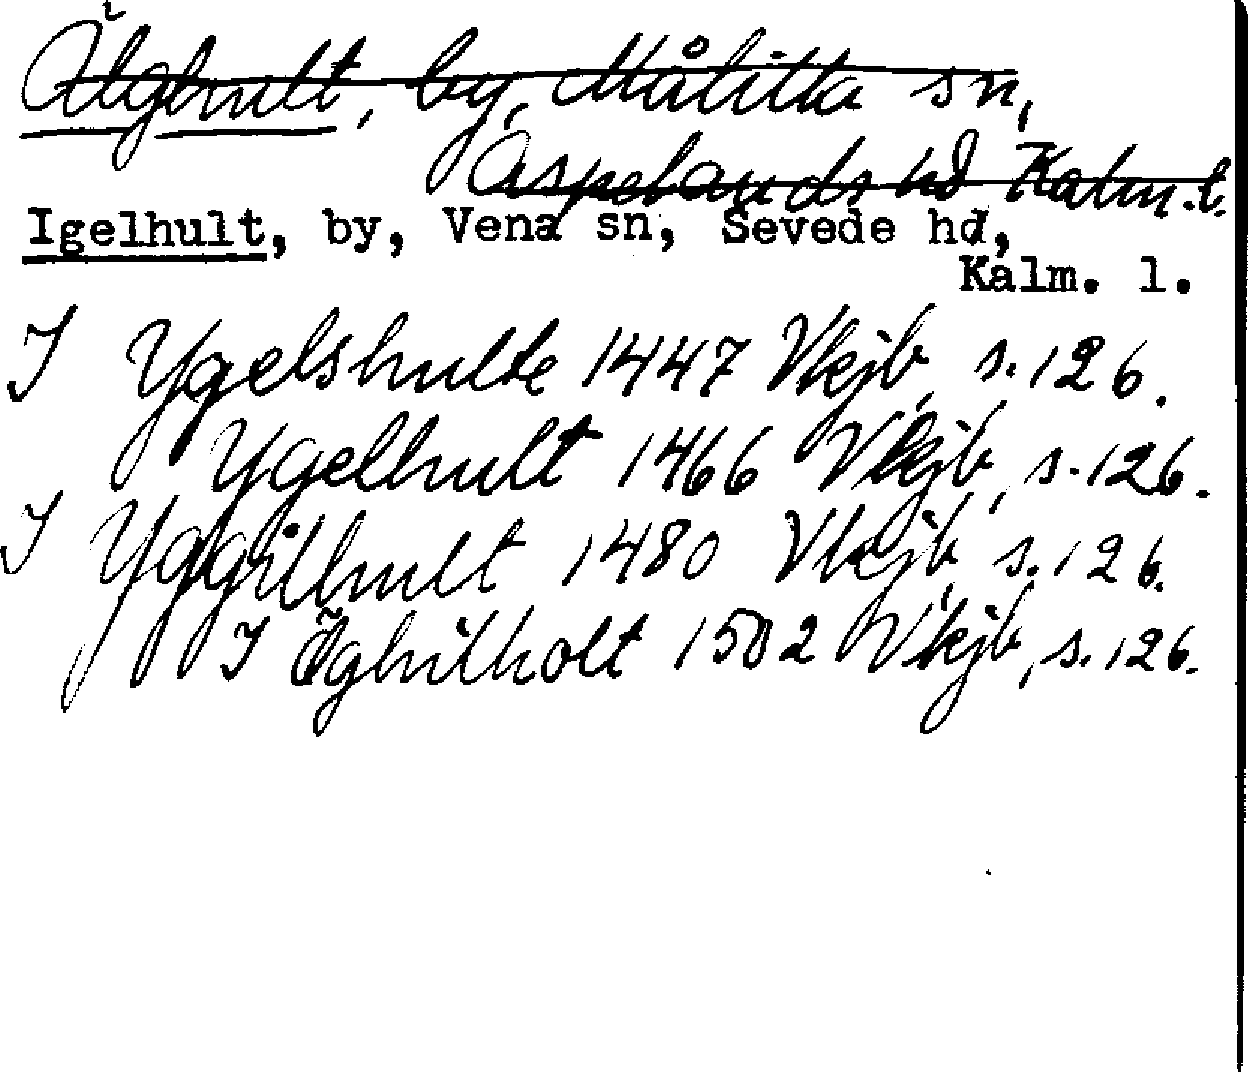 Älghult, by, Målilla sn,
Aspelands hd Kalm. l.
Igelhult, by, Vena sn, Sevede hd,
Kalm. l.
I Ygelshulte 1447 Vkjb, s. 126.
Ygelhult 1466 Vkjb, s. 126.
I Yggilhult 1480 Vkjb, s. 126.
I Öghilholt 1502 Vkjb, s. 126.